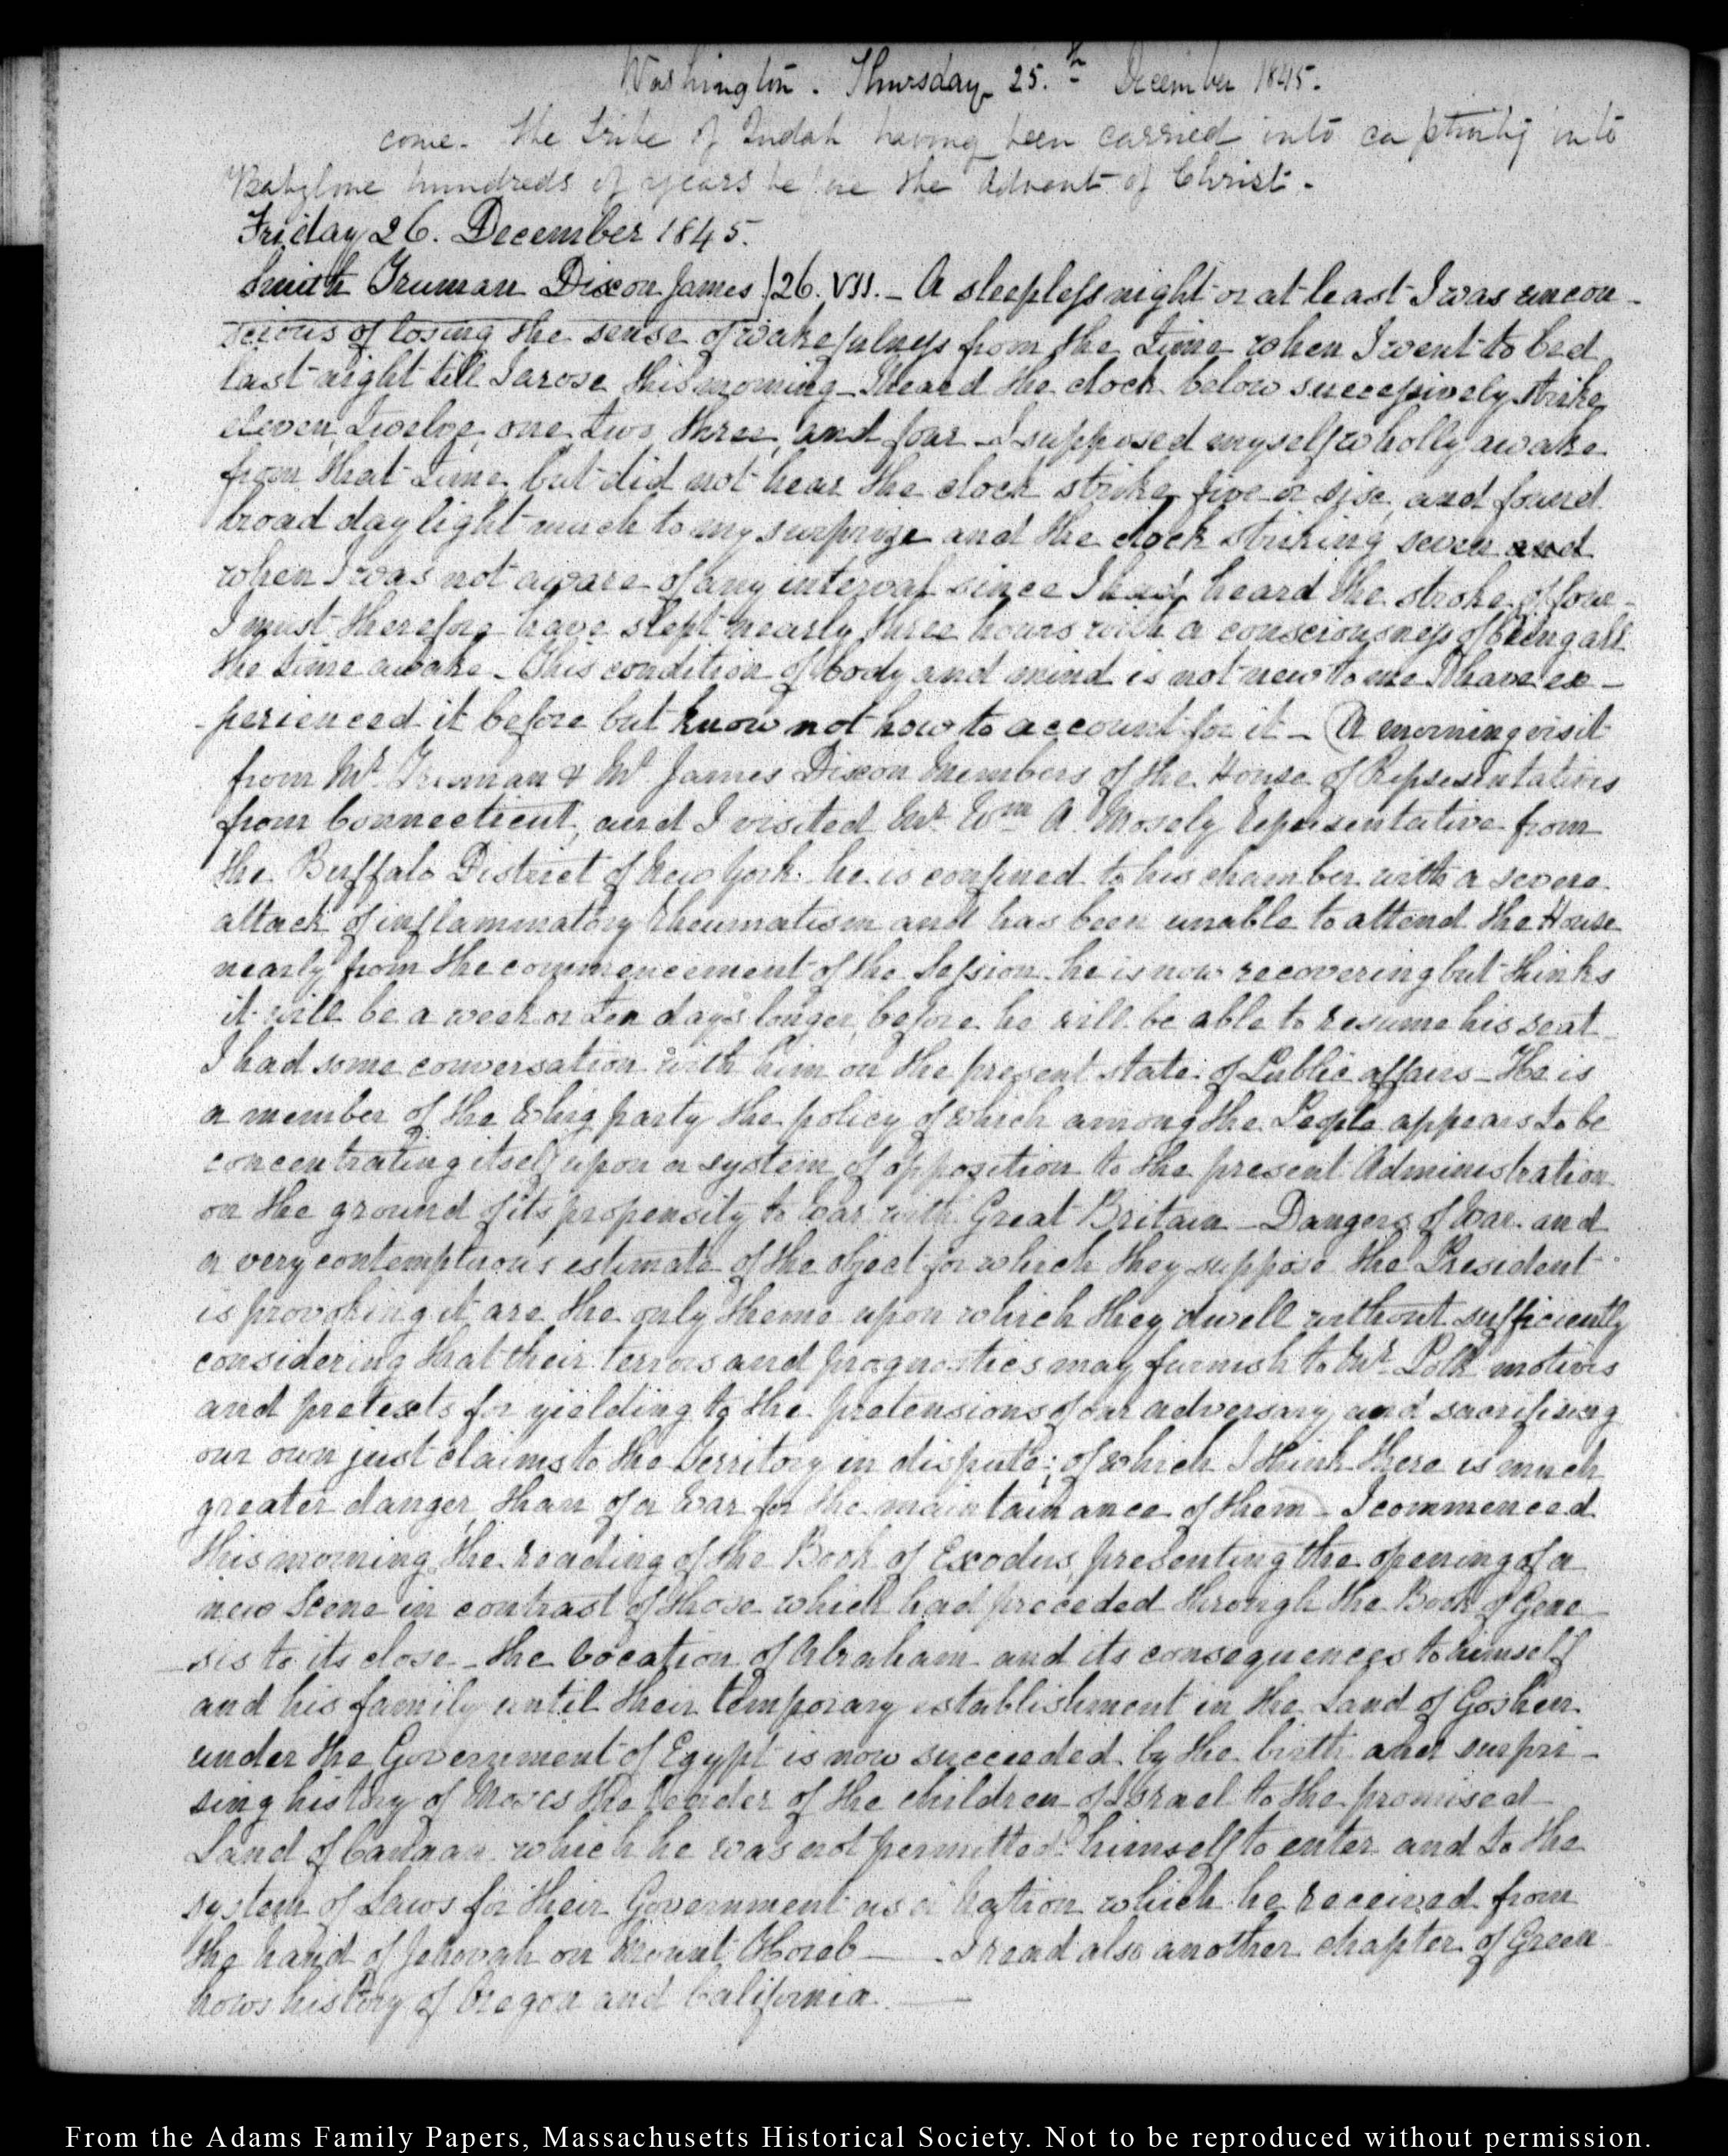 Washington. Thursday 25.th December 1845.
come. the tribe of Judah having been carried into captivity into
Babylone hundreds of years before the Advent of Christ.
Friday 26. December 1845.
Smith Truman Dixon James 26. VII. – A sleepless night or at least I was uncon-
scious of losing the sense of wakefulness from the time when I went to bed
last night till I arose this morning – I heard the clock below successively strike
eleven, twelve, one two three, and four – I supposed myself wholly awake
from that time but did not hear the clock strike five or six, and found
broad day light much to my surprize and the clock striking seven and
when I was not aware of any interval since I had heard the stroke of four –
I must therefore have slept nearly three hours with a consciousness of being all
the time awake – This condition of body and mind is not new to me I have ex-
perienced it before but know not how to account for it – A morning visit
from Mr. Truman & Mr. James Dixon Members of the House of Representatives
from Connecticut, and I visited Mr. Wm. A. Mosely Representative from
the Buffalo District of New York. he is confined to his chamber with a severe
attack of inflammatory rheumatism and has been unable to attend the House
nearly from the commencement of the Session. he is now recovering but thinks
it will be a week or ten days longer, before he will be able to resume his seat
I had some conversation with him on the present state of Public affairs – He is
a member of the Whig party the policy of which among the People appears to be
concentrating itself upon a system of opposition to the present Administration
on the ground of its propensity to War with Great Britain – Dangers of War and
a very contemptuous estimate of the object for which they suppose the President
is provoking it are the only theme upon which they dwell without sufficiently
considering that their terrors and prognostics may furnish to Mr. Polk motives
and pretexts for yielding to the pretensions of our adversary and sacrificing
our own just claims to the Territory in dispute; of which I think there is much
greater danger, than of a War for the maintainance of them – I commenced
this morning the reading of the Book of Exodus, presenting the opening of a
new Scene in contrast of those which had preceded through the Book of Gene-
sis to its close – the vocation of Abraham and its consequences to himself
and his family until their temporary establishment in the Land of Goshen
under the Government of Egypt is now succeeded by the birth and surpri-
sing history of Moses the leader of the children of Israel to the promised
Land of Canaan which he was not permitted himself to enter and to the
system of Laws for their Government as a Nation which he received from
the hand of Jehovah on Mount Horeb – I read also another chapter of Green-
hows history of Oregon and California. –
From the Adams Family Papers, Massachusetts Historical Society. Not to be reproduced without permission.